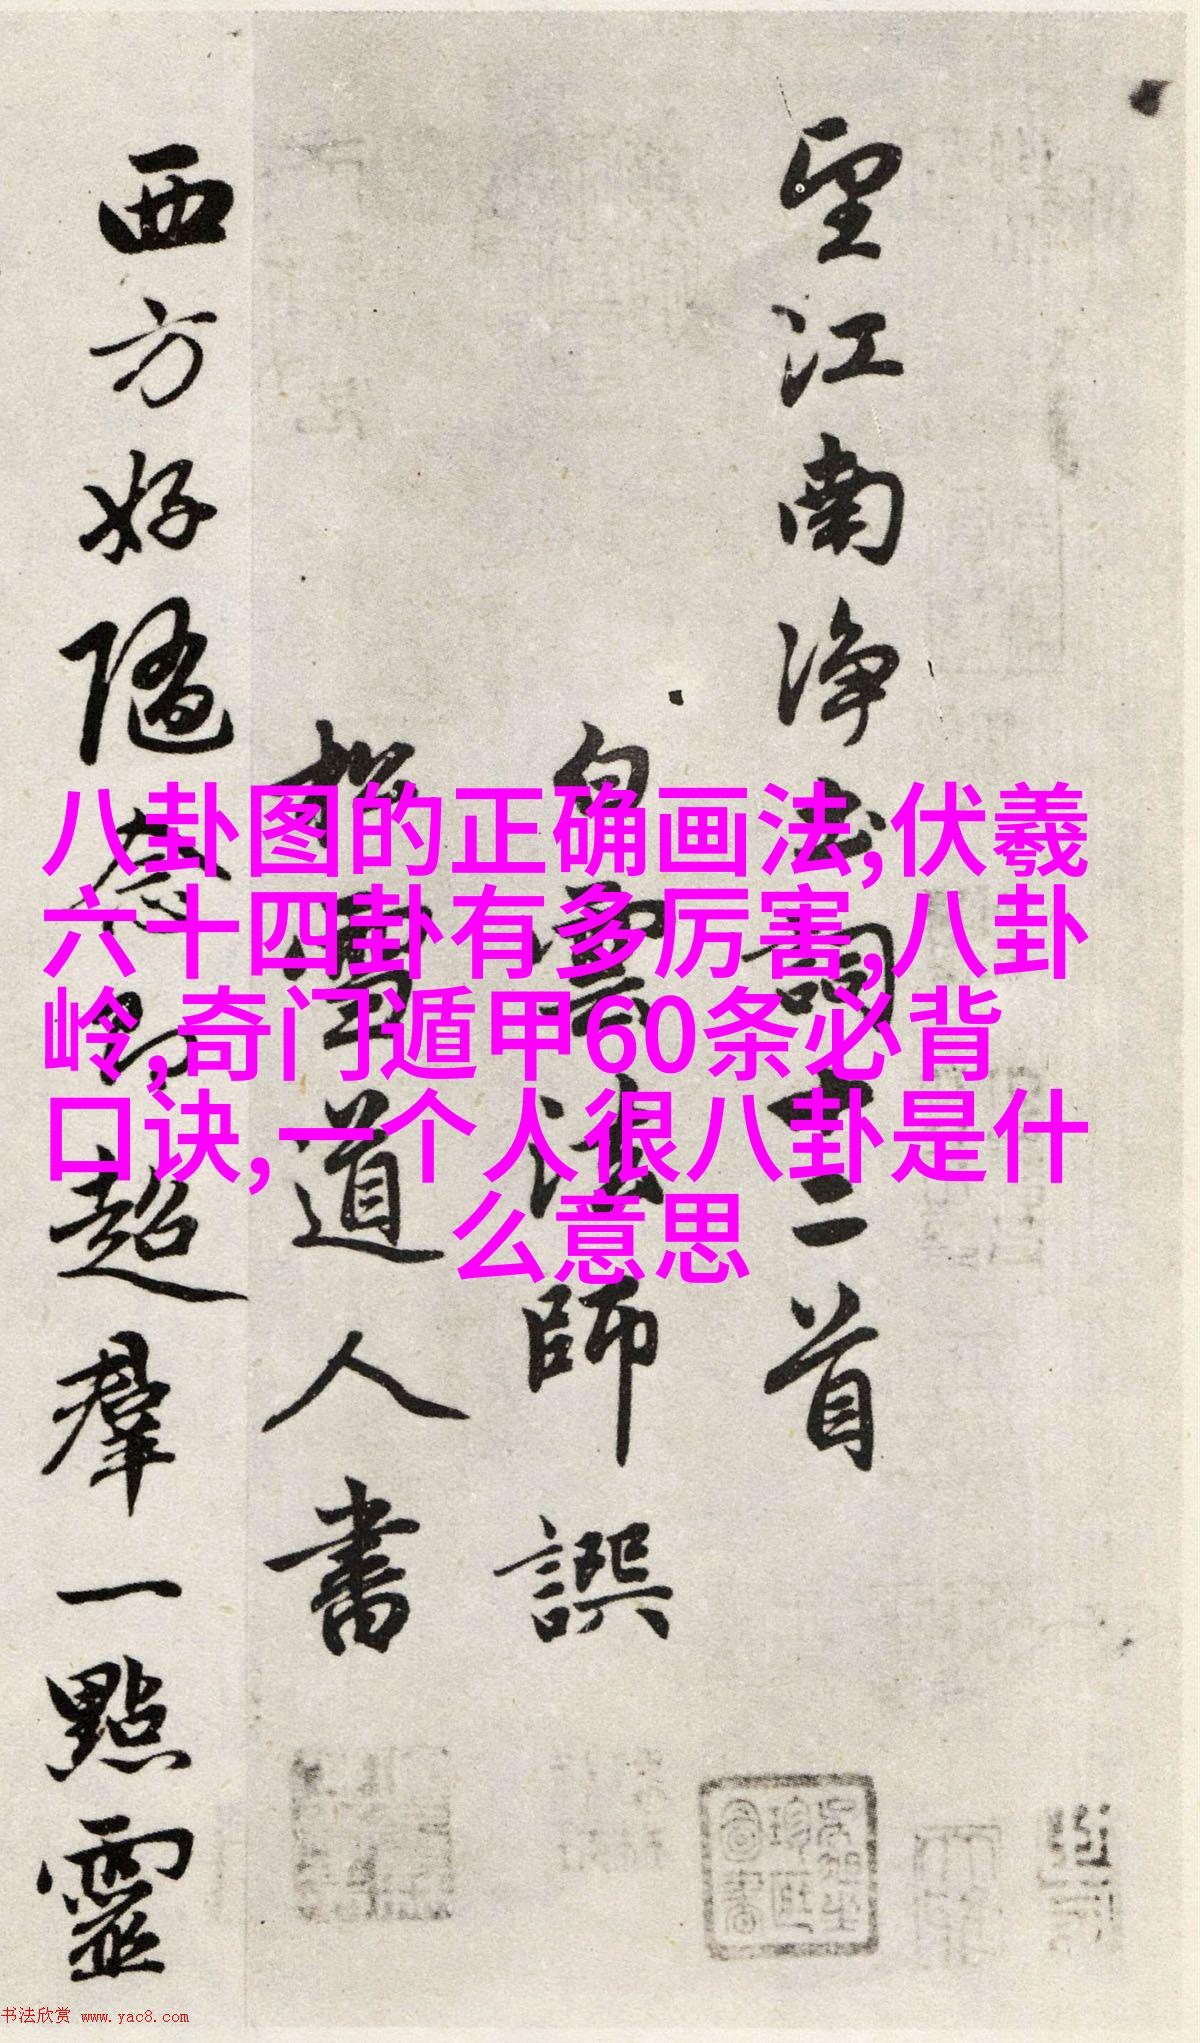 望江南净土詞十二首
白雲法師譔
松雪道人書
西方好隨念即超羣一點靈
八卦图的正确画法,伏羲
六十四卦有多厉害,八卦
岭,奇门遁甲60条必背
口诀,一个人很八卦是什
么意思
书法欣赏 www.yac8.com